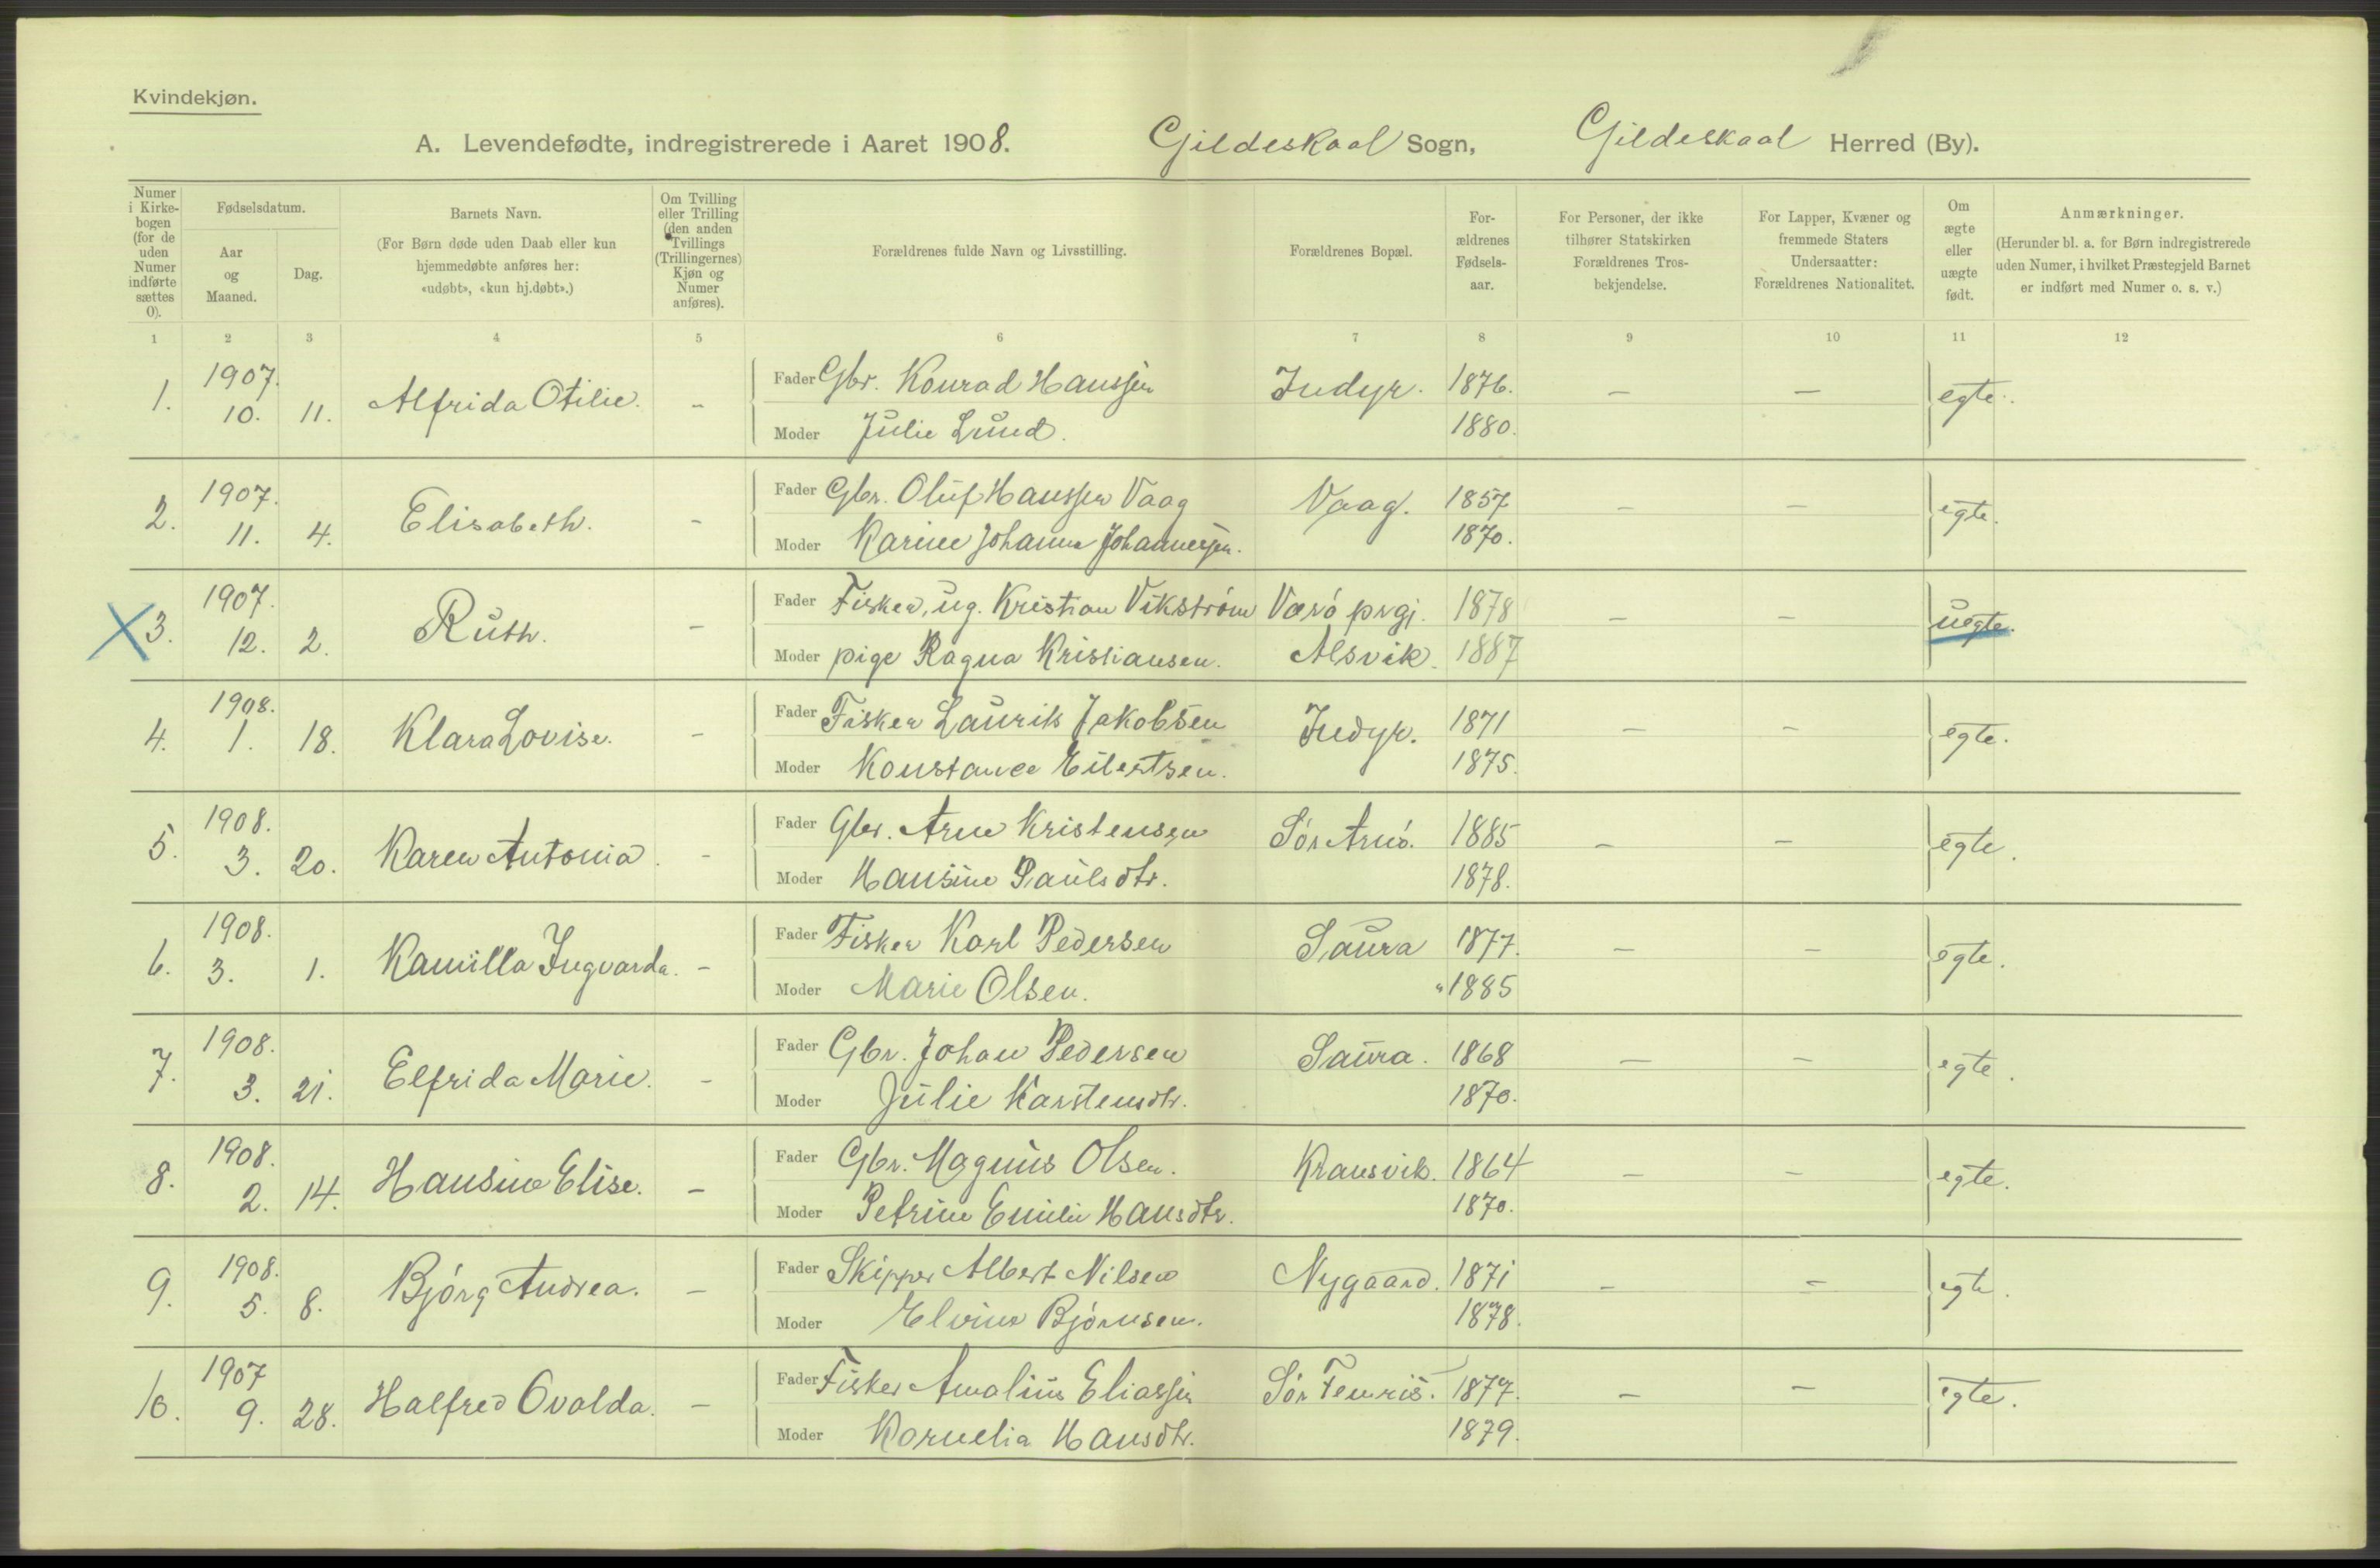 Kvindekjøn.
A. Levendefødte, indregistrerede i Aaret 1908. Gildeskaal Sogn, Gildeskaal Herred (By).
Numer i Kirkebogen (for de uden Numer indførte sættes 0).
Fødselsdatum.
Aar og Maaned.
Dag.
Barnets Navn.
(For Børn døde uden Daab eller kun hjemmedøbte anføres her: «udøbt», «kun hj.døbt».)
Om Tvilling eller Trilling (den anden Tvillings (Trillingernes) Kjøn og Numer anføres).
Forældrenes fulde Navn og Livsstilling.
Forældrenes Bopæl.
Forældrenes Fødselsaar.
For Personer, der ikke tilhører Statskirken Forældrenes Trosbekjendelse.
For Lapper, Kvæner og fremmede Staters Undersaatter: Forældrenes Nationalitet.
Om ægte eller uægte født.
Anmærkninger.
(Herunder bl. a. for Børn indregistrerede uden Numer, i hvilket Præstegjeld Barnet er indført med Numer o. s. v.)
1 2 3 4 5 6 7 8 9 10 11 12
1907. Fader Gbr. Konrad Hanssen Indyr. 1876.
1. 10. 11. Alfrida Otilie. - - - egte.
Moder Julie Lund. 1880.
1907. Fader Gbr. Oluf Hanssen Vaag Vaag. 1857
2. 11. 4. Elisabeth. - - - egte.
Moder Karine Johanne Johannesen. 1870.
1907. Fader Fisker, ug. Kristian Vikström Værö prgj. 1878
X 3. 12. 2. Ruth. - - - uegte.
Moder pige Ragna Kristiansen. Alsvik. 1887
1908. Fader Fisker Laurits Jakobsen Indyr. 1871
4. 1. 18. Klara Lovise. - - - egte.
Moder Konstance Eilertsen. 1875.
1908. Fader Gbr. Arne Kristensen Sör Arnö. 1885
5. 3. 20. Karen Antonia. - - - egte.
Moder Hansine Paulsdtr. 1878.
1908. Fader Fisker Karl Pedersen Saura 1877.
6. 3. 1. Kamilla Ingvarda. - - - egte.
Moder Marie Olsen. 1885
1908. Fader Gbr. Johan Pedersen Saura. 1868
7. 3. 21. Elfrida Marie. - - - egte.
Moder Julie Karstensdtr. 1870.
1908. Fader Gbr. Magnus Olsen. Kransvik. 1864
8. 2. 14. Hansine Elise. - - - egte.
Moder Petrine Emilie Hansdtr. 1870.
1908. Fader Skipper Albert Nilsen Nygaard. 1871
9. 5. 8. Björg Andrea. - - - egte.
Moder Elvine Björnsen. 1878.
1907 Fader Fisker Amalius Eliassen Sör 1877.
10. 9. 28. Halfred Ovalda. - - - egte.
Moder Kornelia Hansdtr. 1879.